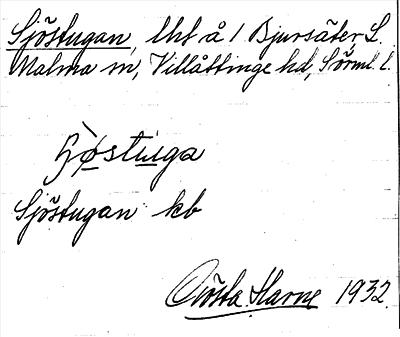 Sjöstugan, lht å 1 Bjursäter, L.
Malma sn, Villåttinge hd, Sörml. l.
Sjöstugan kb
Gösta Harne 1932.